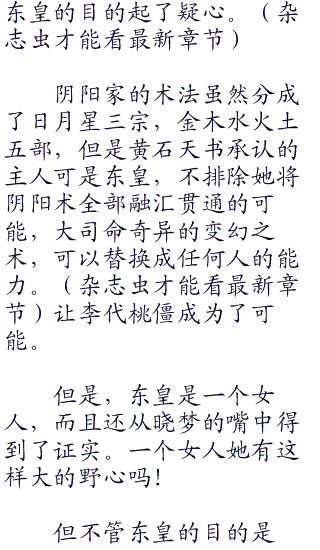 东皇的目的起了疑心。（杂
志虫才能看最新章节）
阴阳家的术法虽然分成
了日月星三宗，金木水火土
五部，但是黄石天书承认的
主人可是东皇，不排除她将
阴阳术全部融汇贯通的可
能，大司命奇异的变幻之
术，可以替换成任何人的能
力。（杂志虫才能看最新章
节）让李代桃僵成为了可
能。
但是，东皇是一个女
人，而且还从晓梦的嘴中得
到了证实。一个女人她有这
样大的野心吗！
但不管东皇的目的是